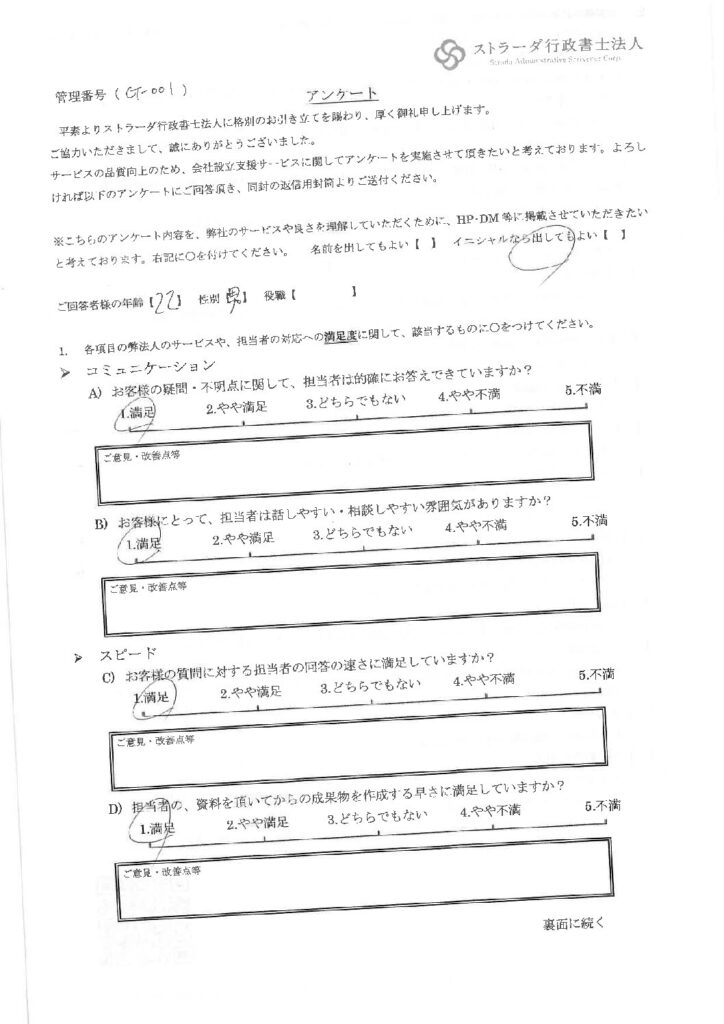 ストラーダ行政書士法人
Strada Administrative Scrivener Corp.
管理番号 (GT-001)
アンケート
平素よりストラーダ行政書士法人に格別のお引き立てを賜わり、厚く御礼申し上げます。
ご協力いただきまして、誠にありがとうございました。
サービスの品質向上のため、会社設立支援サービスに関してアンケートを実施させて頂きたいと考えております。よろし
ければ以下のアンケートにご回答頂き、同封の返信用封筒よりご送付ください。
※こちらのアンケート内容を、弊社のサービスや良さを理解していただくために、HP・DM等に掲載させていただきたい
と考えております。右記に○を付けてください。 名前を出してもよい【 】 イニシャルなら出してもよい【 】
ご回答者様の年齢【22】 性別【男】 役職【 】
1. 各項目の弊法人のサービスや、担当者の対応への満足度に関して、該当するものに○をつけてください。
➢ コミュニケーション
A) お客様の疑問・不明点に関して、担当者は的確にお答えできていますか？
1.満足 2.やや満足 3.どちらでもない 4.やや不満 5.不満
ご意見・改善点等
B) お客様にとって、担当者は話しやすい・相談しやすい雰囲気がありますか？
1.満足 2.やや満足 3.どちらでもない 4.やや不満 5.不満
ご意見・改善点等
➢ スピード
C) お客様の質問に対する担当者の回答の速さに満足していますか？
1.満足 2.やや満足 3.どちらでもない 4.やや不満 5.不満
ご意見・改善点等
D) 担当者の、資料を頂いてからの成果物を作成する早さに満足していますか？
1.満足 2.やや満足 3.どちらでもない 4.やや不満 5.不満
ご意見・改善点等
裏面に続く